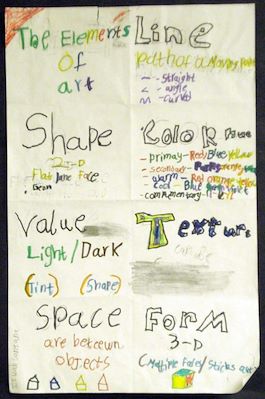 The Elements
Of
art
Line
Path of a Moving Point
- Straight
< - angle
- Curved
Shape
2-D
Flat
Color
- primary - Red Blue yellow
- secondary -
- warm - Red orange yellow
- Cool - Blue green violet
Value
Light / Dark
(Tint) (Shape)
Texture
Space
are between
objects
Form
3-D
(Multiple Fales / Sticks out)